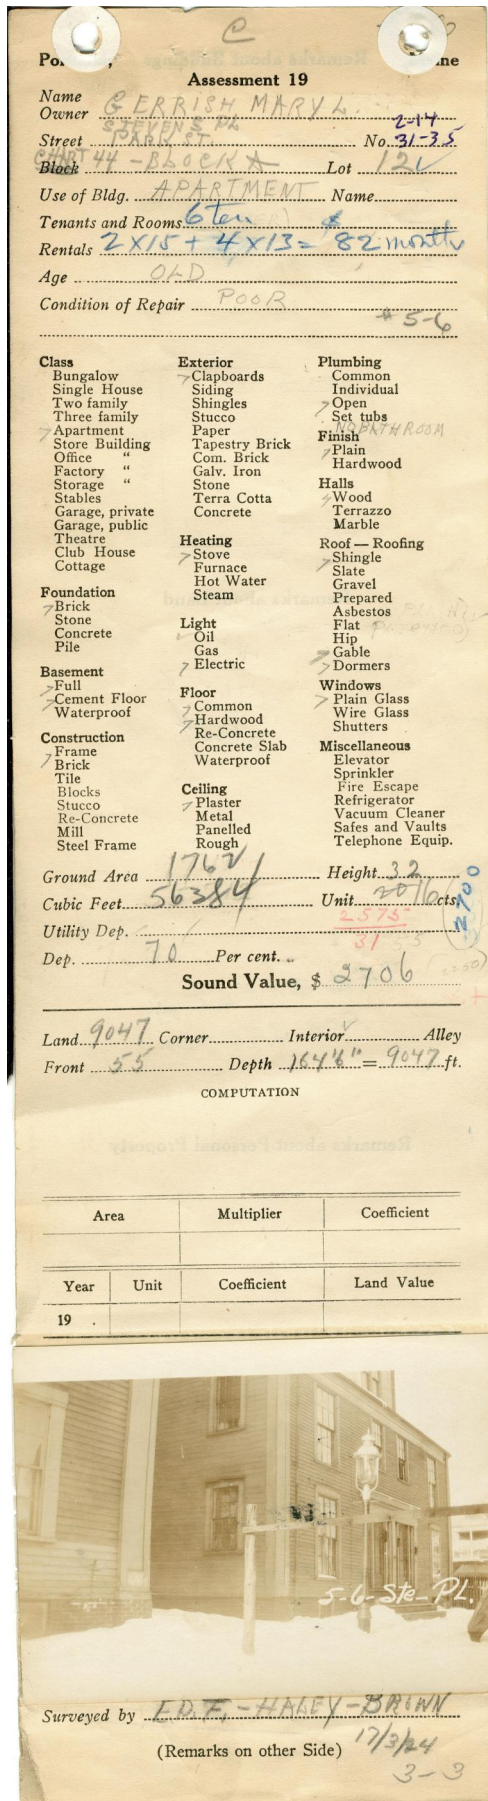 C
Po
ne
Assessment 19
Name
Owner GERRISH MARY L.
STEVENS PL
2-14
Street PARK ST. No. 31-35
CHART 44 - BLOCK A
Block Lot 12
Use of Bldg. APARTMENT Name
Tenants and Rooms 6 Ten
Rentals 2 x 15 + 4 x 13 = $82 month
Age OLD
Condition of Repair POOR
# 5-6
Class
Bungalow
Single House
Two family
Three family
Apartment
Store Building
Office "
Factory "
Storage "
Stables
Garage, private
Garage, public
Theatre
Club House
Cottage
Foundation
Brick
Stone
Concrete
Pile
Basement
Full
Cement Floor
Waterproof
Construction
Frame
Brick
Tile
Blocks
Stucco
Re-Concrete
Mill
Steel Frame
Exterior
Clapboards
Siding
Shingles
Stucco
Paper
Tapestry Brick
Com. Brick
Galv. Iron
Stone
Terra Cotta
Concrete
Heating
Stove
Furnace
Hot Water
Steam
Light
Oil
Gas
Electric
Floor
Common
Hardwood
Re-Concrete
Concrete Slab
Waterproof
Ceiling
Plaster
Metal
Panelled
Rough
Plumbing
Common
Individual
Open
Set tubs
NO BATHROOM
Finish
Plain
Hardwood
Halls
Wood
Terrazzo
Marble
Roof — Roofing
Shingle
Slate
Gravel
Prepared
Asbestos
Flat
Hip
Gable
Dormers
Windows
Plain Glass
Wire Glass
Shutters
Miscellaneous
Elevator
Sprinkler
Fire Escape
Refrigerator
Vacuum Cleaner
Safes and Vaults
Telephone Equip.
Ground Area 1762 Height 32
Cubic Feet 56384 Unit 20 16 cts.
2700
Utility Dep. 2575
51
Dep. 70 Per cent.
Sound Value, $ 2706
Land 9047 Corner Interior Alley
Front 55 Depth 164'6" = 9047 ft.
COMPUTATION
Area Multiplier Coefficient
Year Unit Coefficient Land Value
19 .
5-6-Ste-PL.
Surveyed by ED. F. - HALEY - BROWN
(Remarks on other Side) 17/3/24
3-3